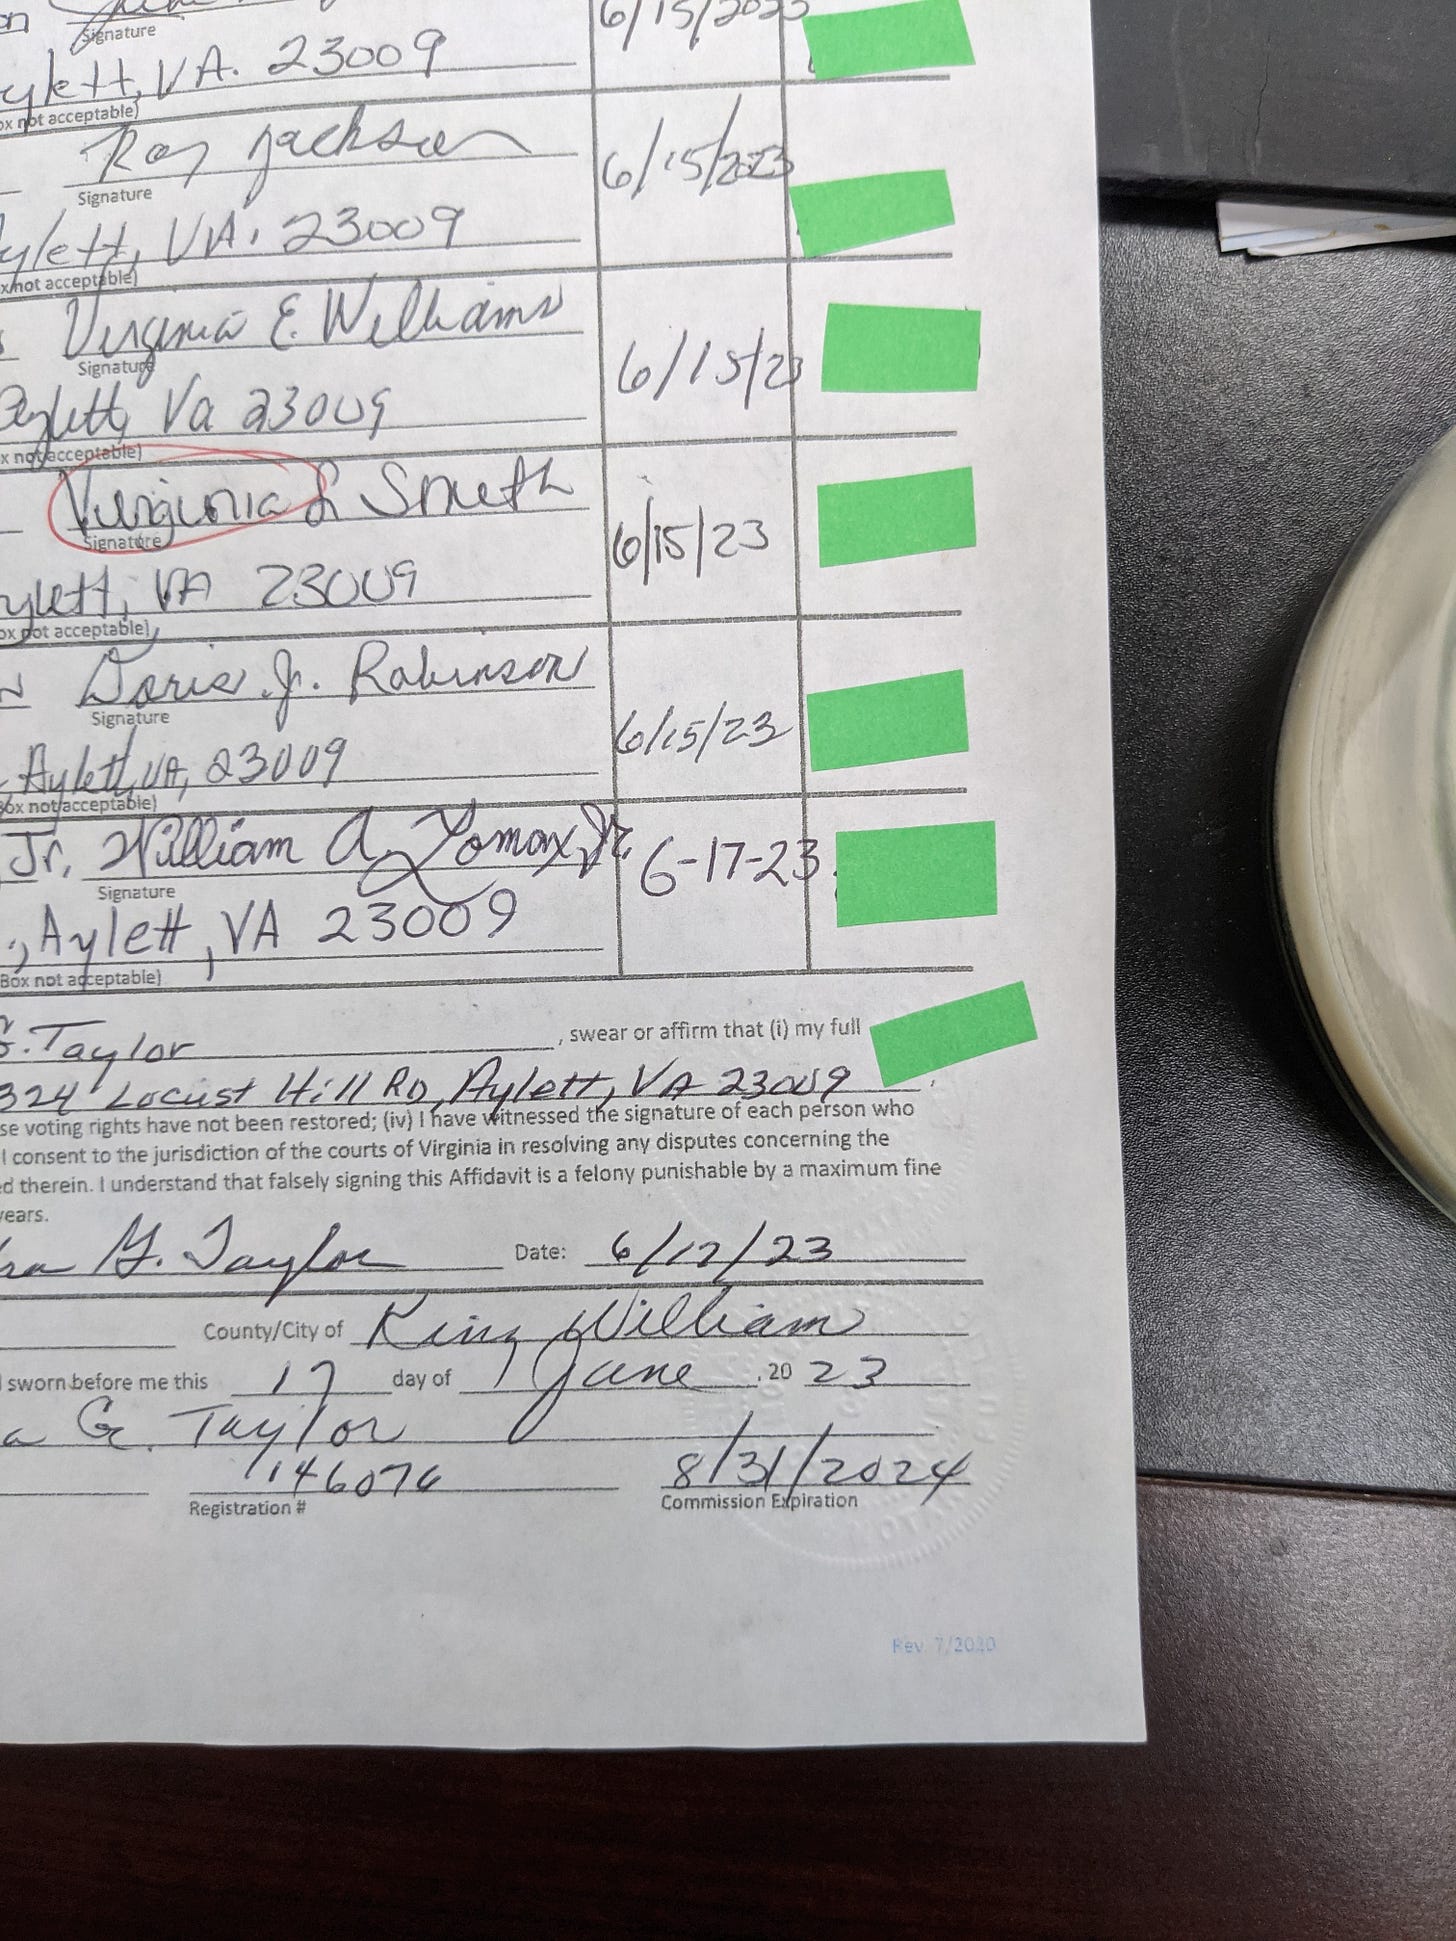 6/15/2023
Signature
VA. 23009
ox not acceptable)
Roy Jackson
6/15/2023
Signature
ylett, VA. 23009
x not acceptable)
Virginia E. Williams
Signature
6/15/23
Aylett, Va 23009
x not acceptable)
Virginia L Smith
Signature
6/15/23
ylett, VA 23009
ox not acceptable)
Doris J. Robinson
Signature
6/15/23
Aylett, VA, 23009
Box not acceptable)
Jr. William A. Lomax, Jr.
6-17-23
Signature
., Aylett, VA 23009
Box not acceptable)
G. Taylor , swear or affirm that (i) my full
324 Locust Hill RD, Aylett, VA 23009
se voting rights have not been restored; (iv) I have witnessed the signature of each person who
I consent to the jurisdiction of the courts of Virginia in resolving any disputes concerning the
d therein. I understand that falsely signing this Affidavit is a felony punishable by a maximum fine
years.
G. Taylor Date: 6/17/23
County/City of King William
sworn before me this 17 day of June , 20 23
a G. Taylor
7146076 8/31/2024
Registration # Commission Expiration
Rev. 7/2020